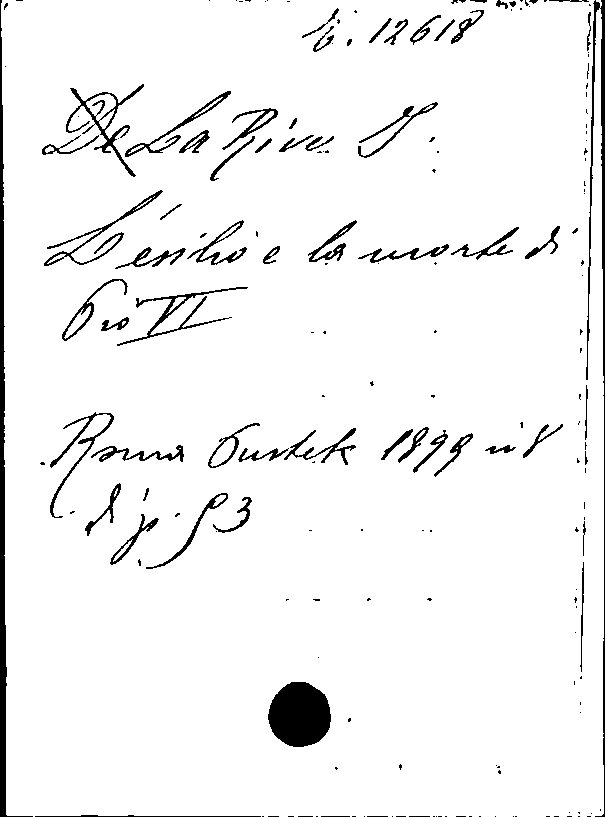 E. 12618
De La Rive I.
L'esilio e la morte di
Pio VI
Roma Pustet 1899 in 8
di p. 53